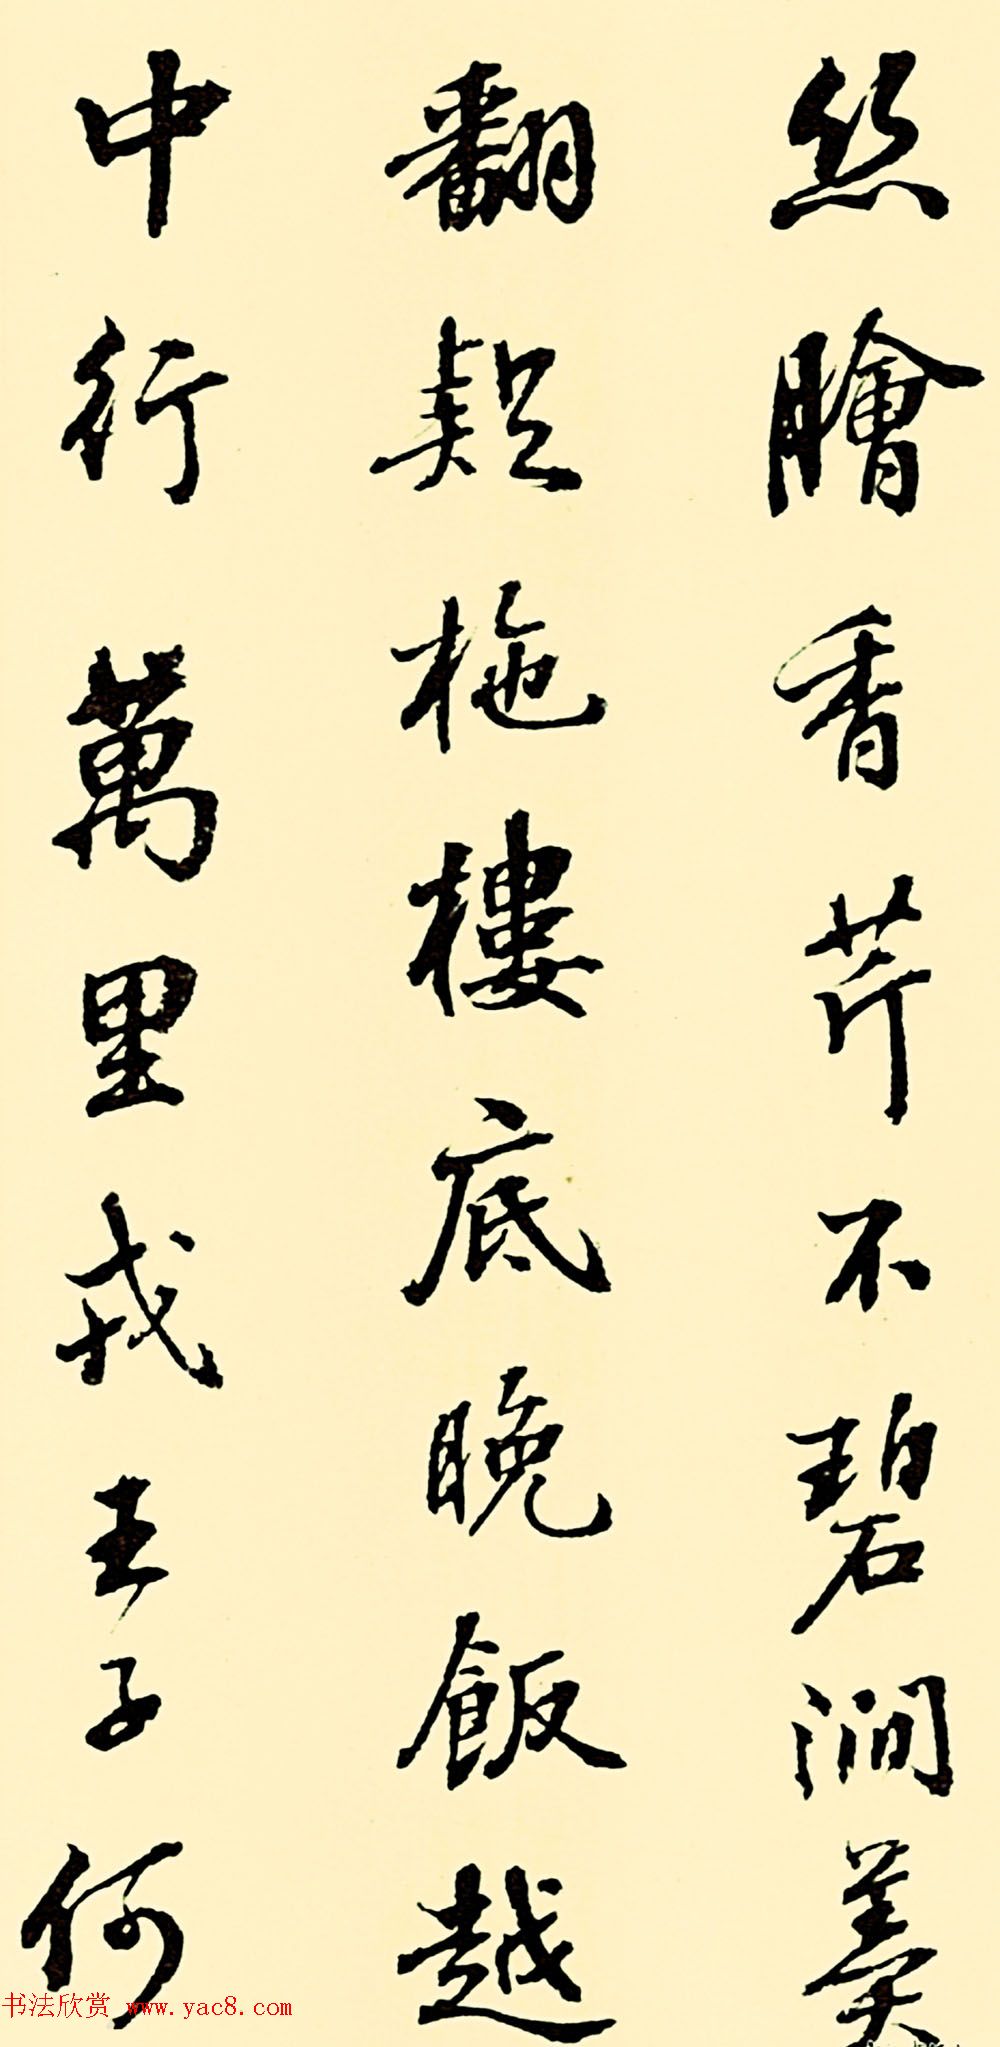 絲膾香芹不碧澗羹
翻疑柂樓底晚飯越
中行萬里戎王子何
书法欣赏 www.yac8.com